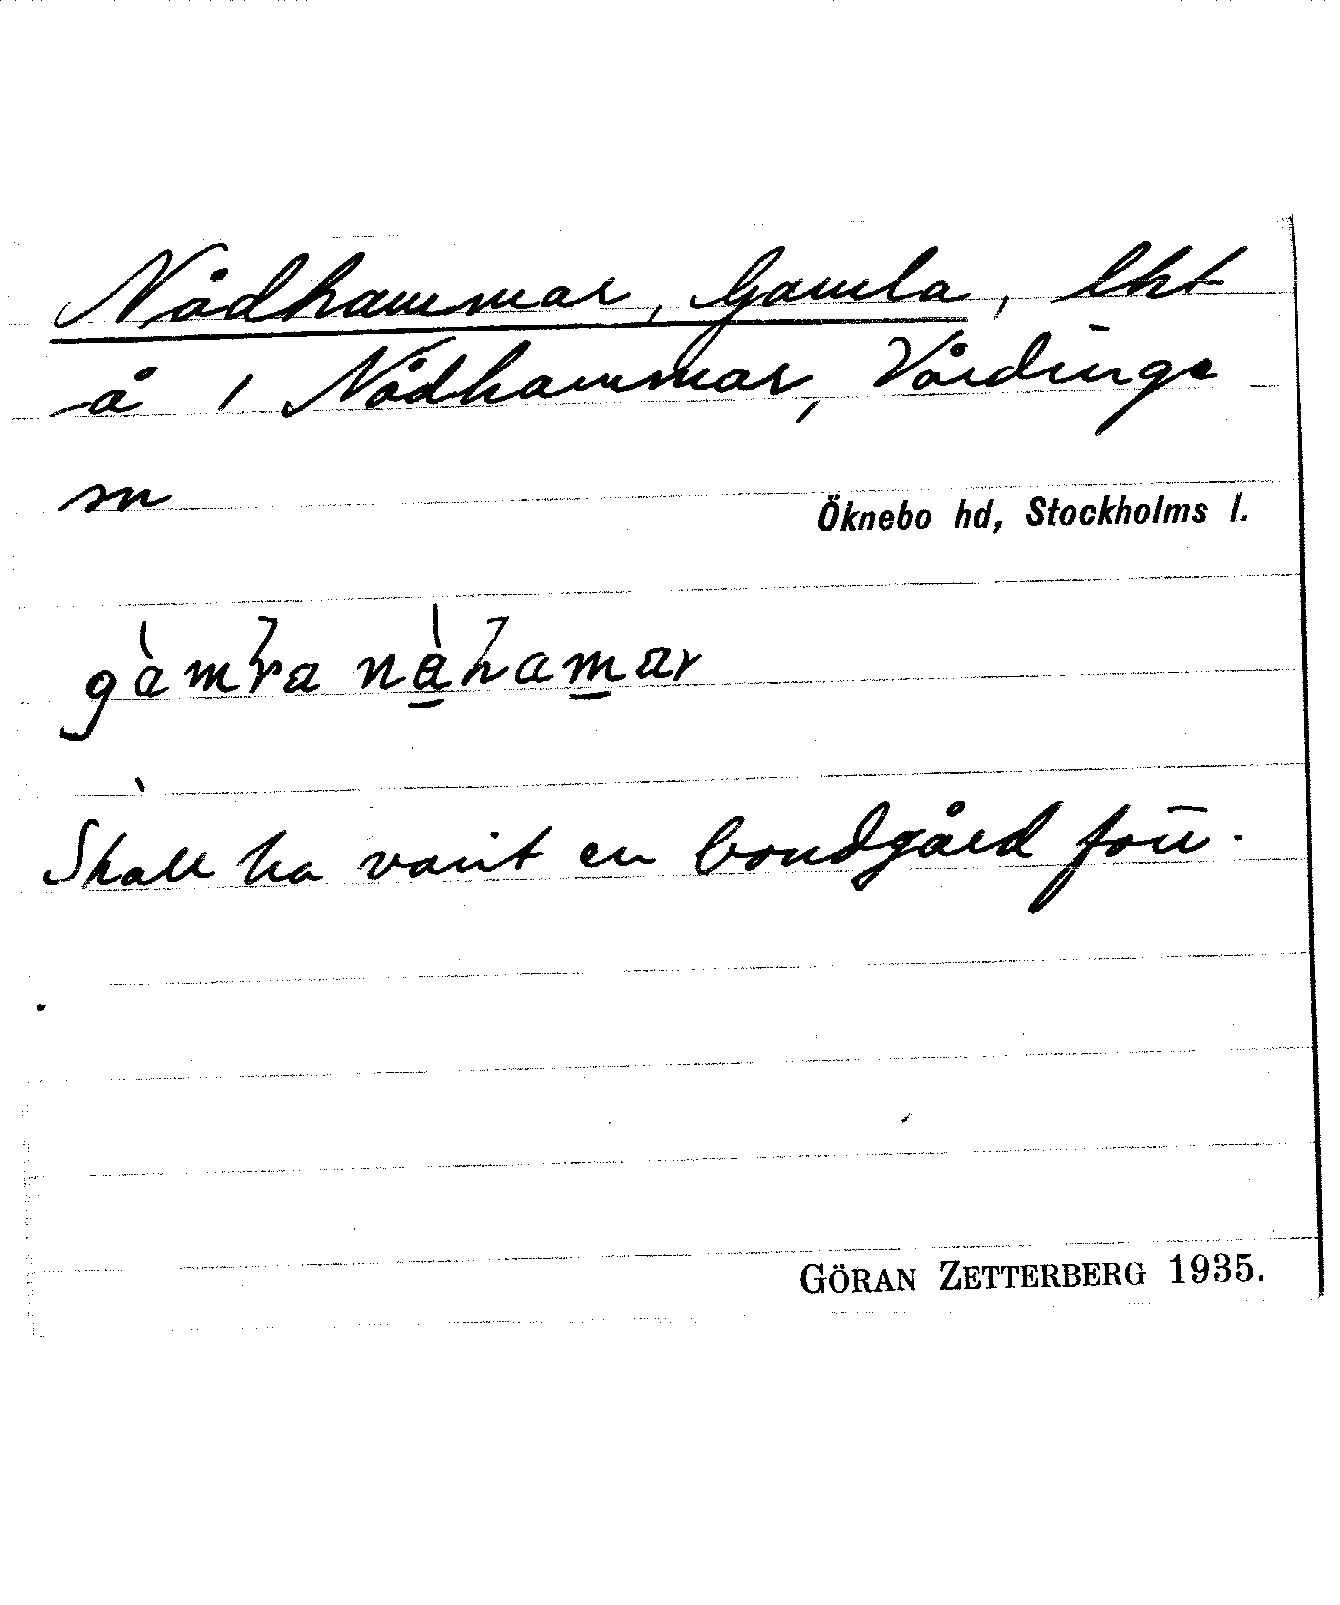 Nådhammar, Gamla, lht
å 1 Nådhammar, Vårdinge
sn
Öknebo hd, Stockholms l.
gàmɽa nàhamar
Skall ha varit en bondgård förr.
GÖRAN ZETTERBERG 1935.